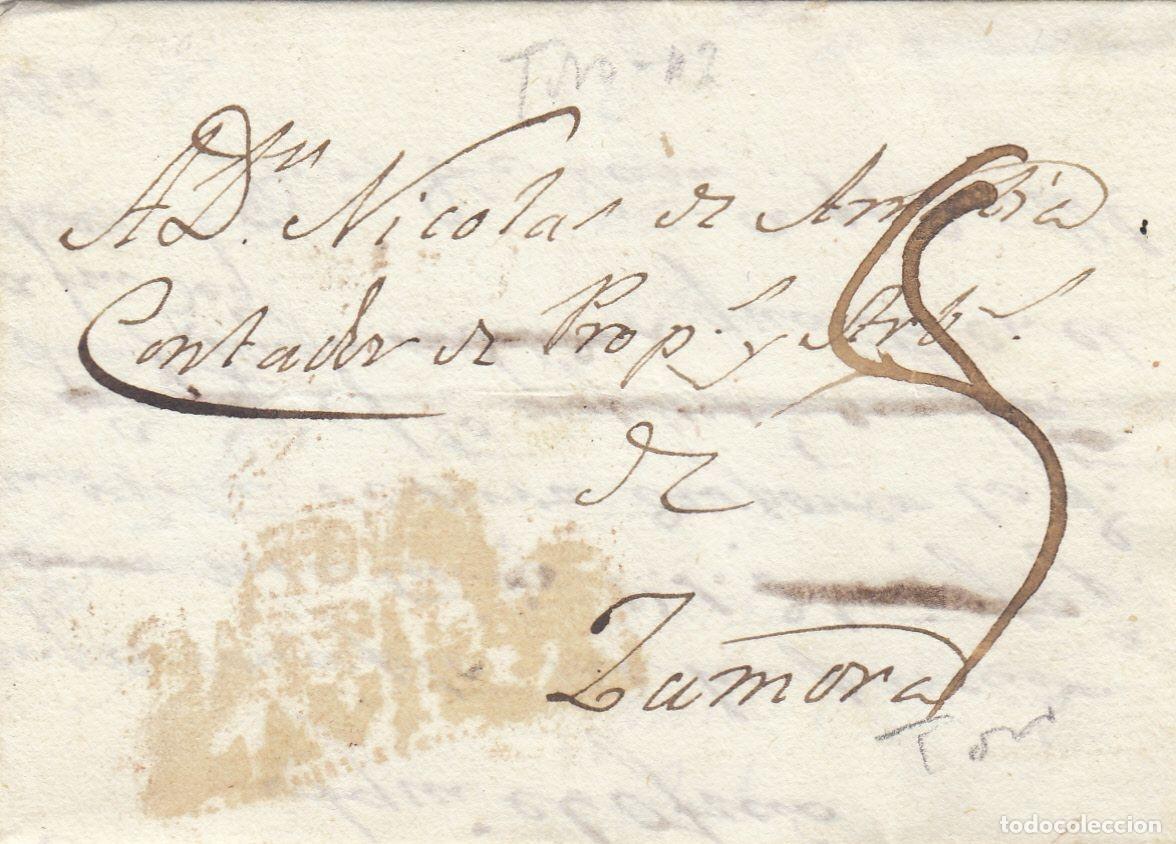 A Dn. Nicolas de
Contador de Prop.s y Arb.s
de
Zamora
Toro
todocoleccion